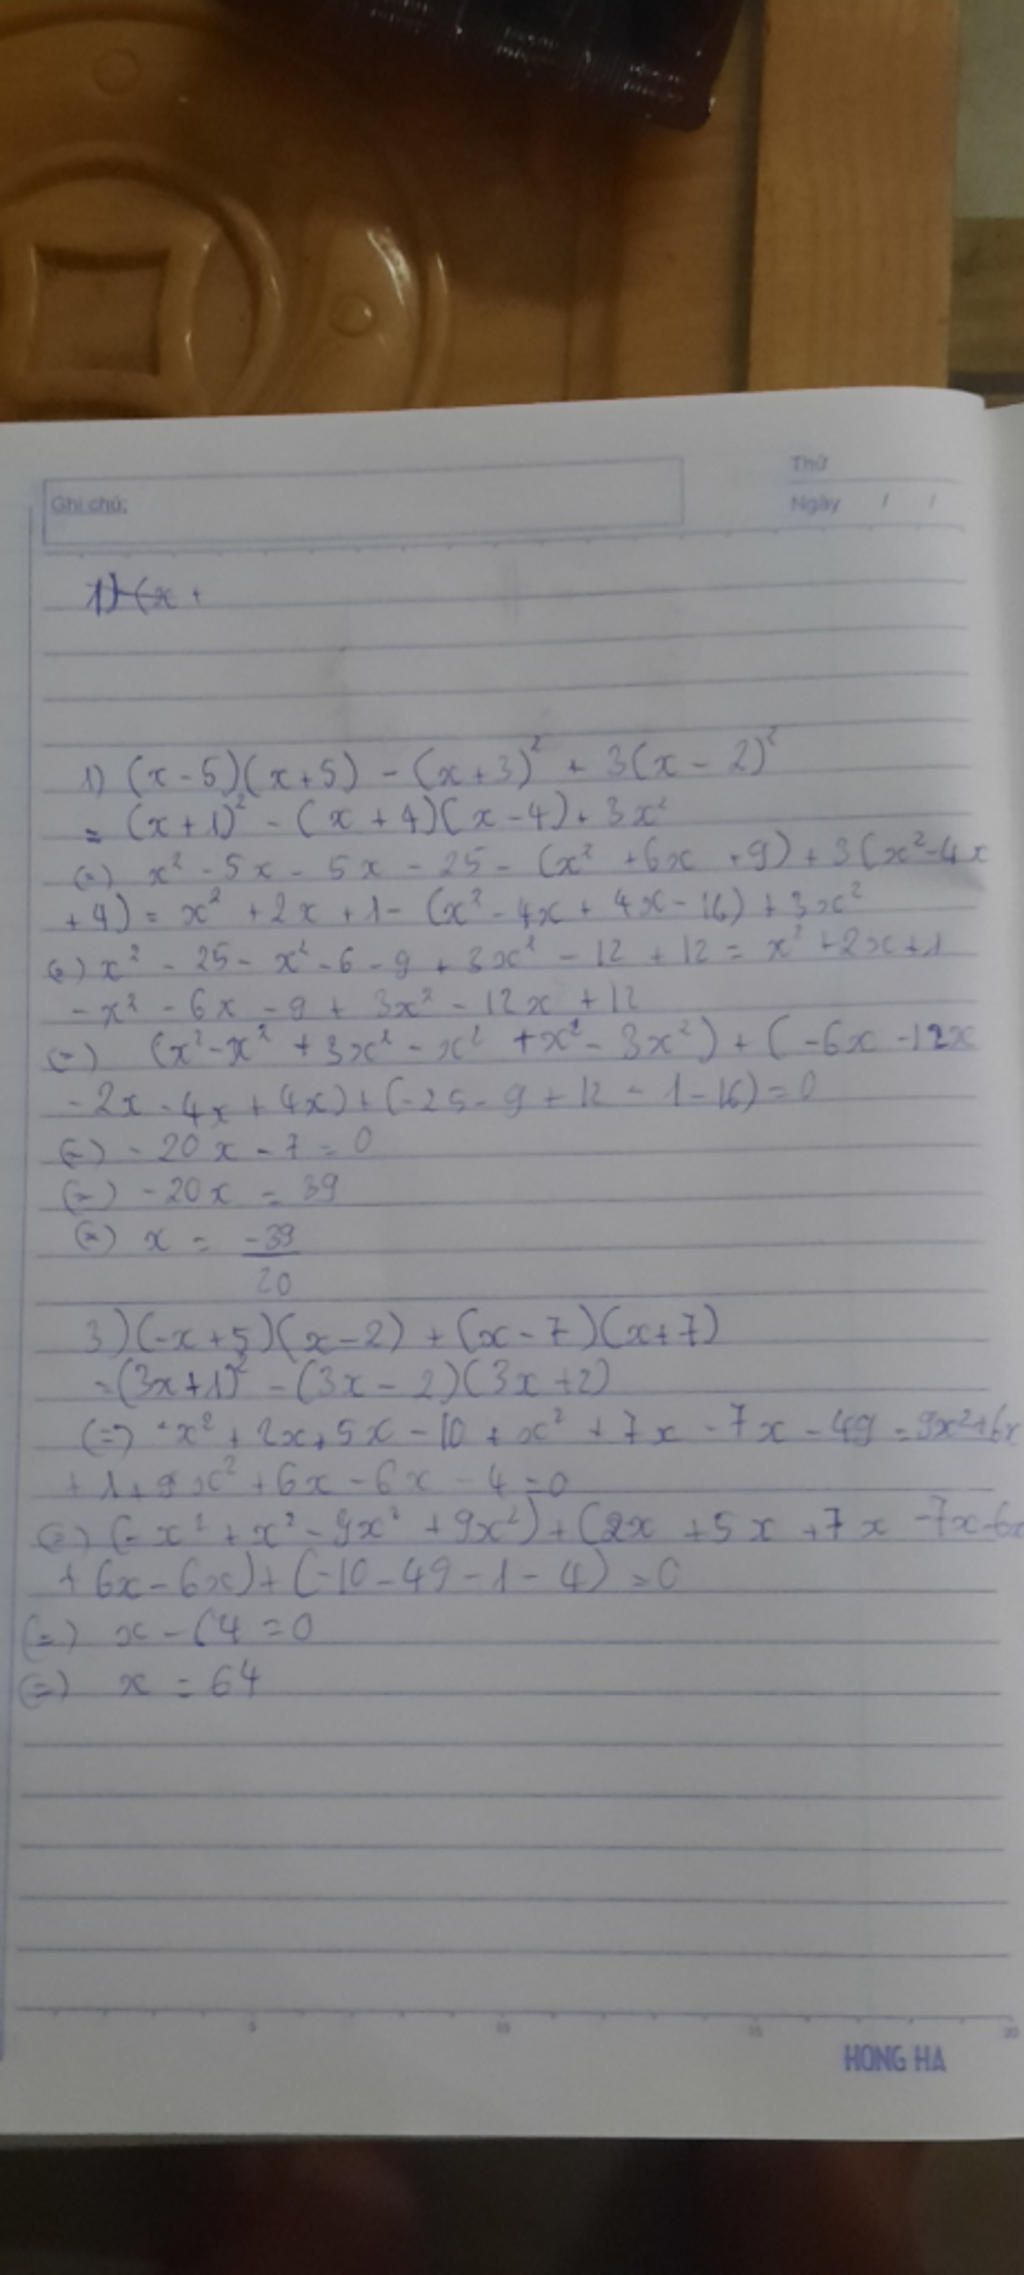 Thứ
Ghi chú:
Ngày / /
1) (x +
1) (x - 5)(x + 5) - (x + 3)² + 3(x - 2)²
= (x + 1)² - (x + 4)(x - 4) + 3x²
(=) x² - 5x - 5x - 25 - (x² + 6x + 9) + 3(x² - 4x
+ 4) = x² + 2x + 1 - (x² - 4x + 4x - 16) + 3x²
(=) x² - 25 - x² - 6 - 9 + 3x² - 12 + 12 = x² + 2x + 1
- x² - 6x - 9 + 3x² - 12x + 12
(=) (x² - x² + 3x² - x² + x² - 3x²) + (-6x - 12x
- 2x - 4x + 4x) + (-25 - 9 + 12 - 1 - 16) = 0
(=) - 20x - 7 = 0
(=) - 20x = 39
(=) x = -39
20
3) (-x + 5)(x - 2) + (x - 7)(x + 7)
= (3x + 1)² - (3x - 2)(3x + 2)
(=) -x² + 2x + 5x - 10 + x² + 7x - 7x - 49 = 9x² + 6x
+ 1 + 9x² + 6x - 6x - 4 = 0
(=) (-x² + x² - 9x² + 9x²) + (2x + 5x + 7x - 7x - 6x
+ 6x - 6x) + (-10 - 49 - 1 - 4) = 0
(=) x - 64 = 0
(=) x = 64
5 10 15 20
HONG HA